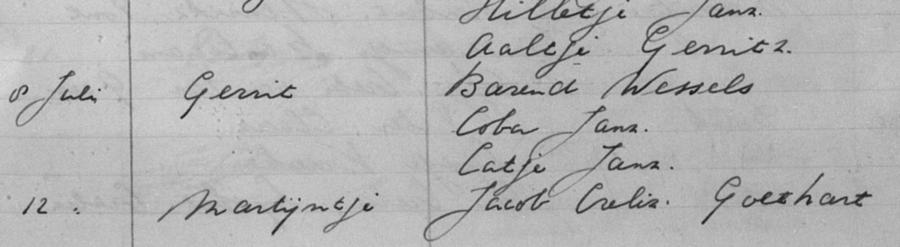 Hilletje Janz.
Aaltje Gerritz.
8 Juli Gerrit Barend Wessels
Coba Janz.
Catje Janz.
12 . Martijntje Jacob Crelis. Goethart